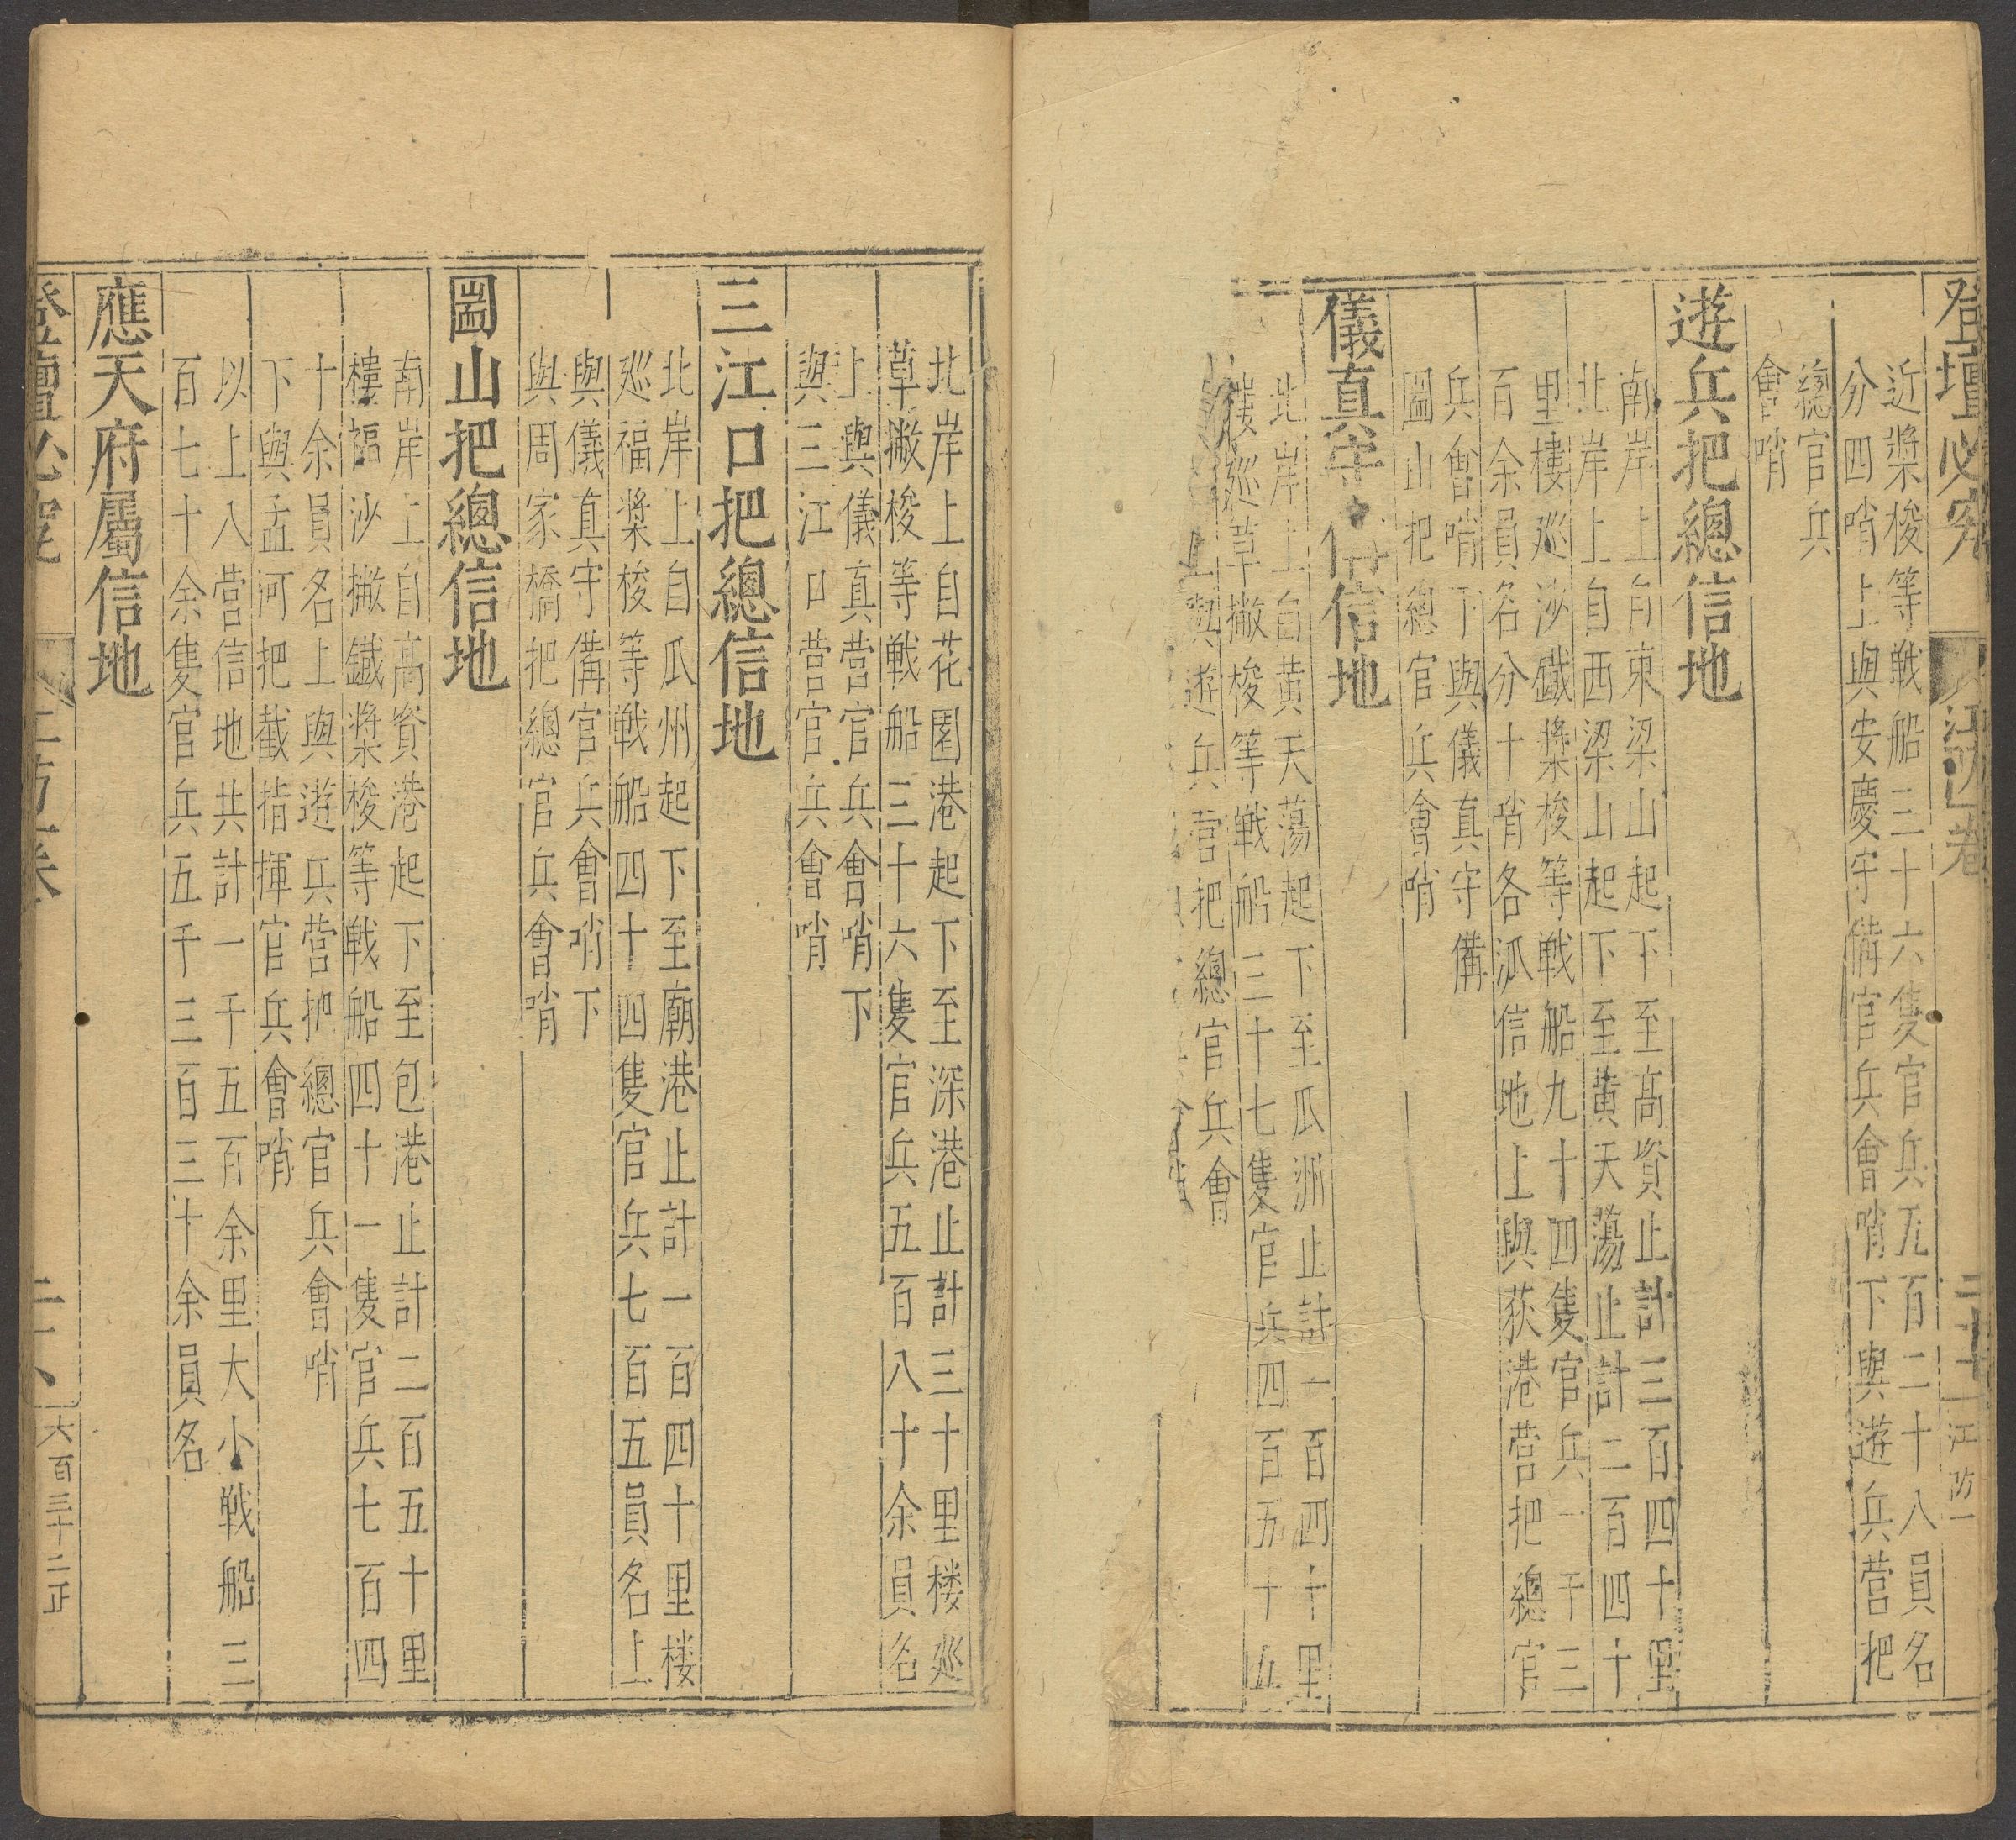 登壇必究
江防一
近槳梭等戦船三十六隻官兵五百二十八員名
分四哨上與安慶守備官兵會哨下與遊兵营把
總官兵
會哨
遊兵把總信地
南岸上自東梁山起下至髙資止計三百四十里
北岸上自西梁山起下至黄天蕩止計二百四十
里樓廵沙鐵槳梭等戦船九十四隻官兵一千三
百余員名分十哨各派信地上與荻港营把總官
兵會哨下與儀真守備
圌山把總官兵會哨
儀真守 信地
北岸上自黄天蕩起下至瓜洲止計一百四十里
廵草撇梭等戦船三十七隻官兵四百五十五
上與遊兵营把總官兵會
北岸上自花園港起下至深港止計三十里楼廵
草撇梭等戦船三十六隻官兵五百八十余員名
上與儀真营官兵會哨下
與三江口营官兵會哨
三江口把總信地
北岸上自瓜州起下至廟港止計一百四十里楼
廵福槳梭等戦船四十四隻官兵七百五員名上
與儀真守備官兵會哨下
與周家橋把總官兵會哨
圌山把總信地
南岸上自髙資港起下至包港止計二百五十里
樓福沙撇鐵槳梭等戦船四十一隻官兵七百四
十余員名上與遊兵营把總官兵會哨
下與孟河把截指揮官兵會哨
以上八营信地共計一千五百余里大小戦船三
百七十余隻官兵五千三百三十余員名
應天府屬信地
登壇必究
六百三十二正